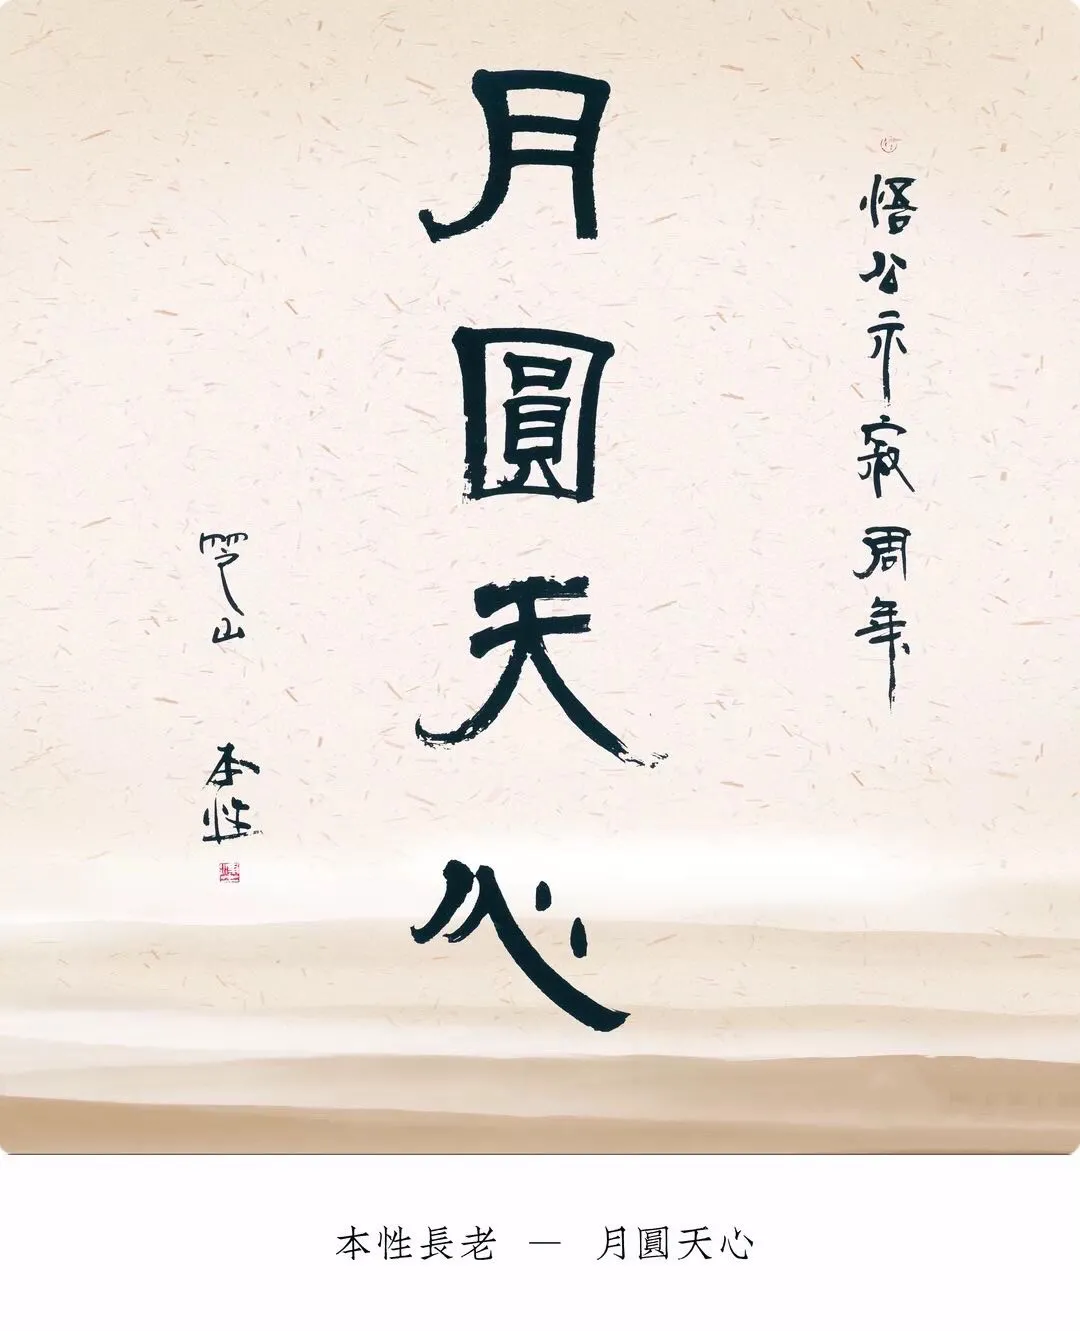 悟公示寂周年
月圓天心
芝山 本性
本性長老 — 月圓天心